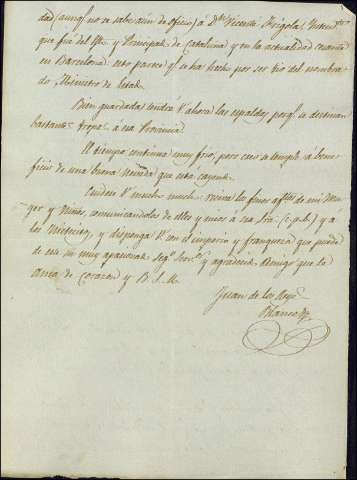 dad (aunq.e no se sabe aun de oficio) á D.n Vicente Frigola, Intend.te
que fue del Ex.to y Principado de Cataluña y en la actualidad cesante
en Barcelona: esto parece q.e se ha hecho por ser tio del nombra-
do Ministro de Estado.
Bien guardadas tendra V. ahora las espaldas porq.e se destinan
bastante tropa á esa Provincia.
El tiempo continua muy frio, pero cae a templé á bene-
ficio de una buena nevada que esta cayendo.
Cuidese V. mucho, mucho: reciba los finos aftos. de mi Mu-
ger y Niña, comunicandolos de ellos y mios á su Sra. (c.p.b.) y á
los Nietecitos, y disponga V. con el imperio y franqueza que puede
de este su muy apasionado Seg.o Serv.r y agradecido Amigo que le
ama de corazon y B. S. M.
Juan de los Reyes
Blanco